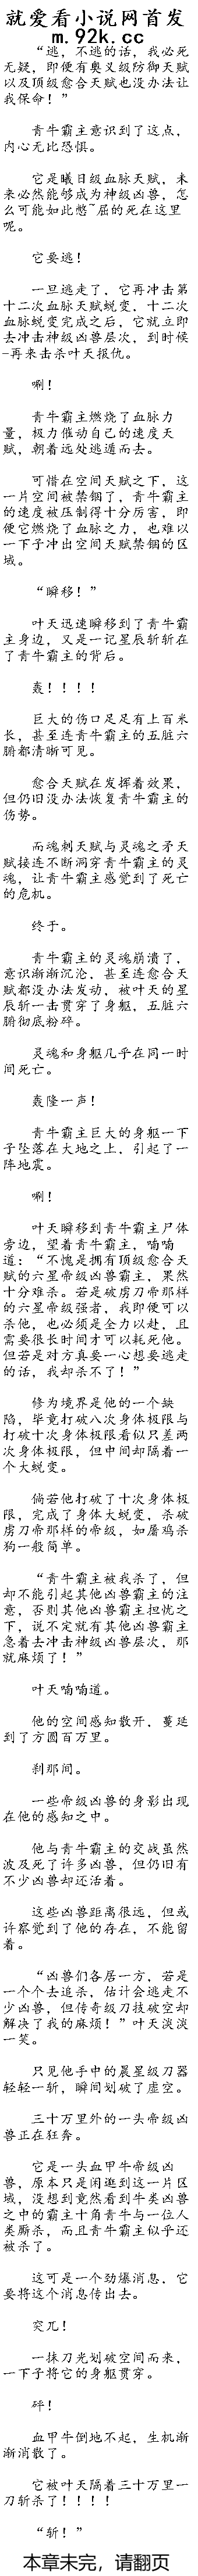 就爱看小说网首发
m.92k.cc
“逃，不逃的话，我必死
无疑，即便有奥义级防御天赋
以及顶级愈合天赋也没办法让
我保命！”
青牛霸主意识到了这点，
内心无比恐惧。
它是曦日级血脉天赋，未
来必然能够成为神级凶兽，怎
么可能如此憋~屈的死在这里
呢。
它要逃！
一旦逃走了，它再冲击第
十二次血脉天赋蜕变，十二次
血脉蜕变完成之后，它就立即
去冲击神级凶兽层次，到时候
-再来击杀叶天报仇。
唰！
青牛霸主燃烧了血脉力
量，极力催动自己的速度天
赋，朝着远处逃遁而去。
可惜在空间天赋之下，这
一片空间被禁锢了，青牛霸主
的速度被压制得十分厉害，即
便它燃烧了血脉之力，也难以
一下子冲出空间天赋禁锢的区
域。
“瞬移！”
叶天迅速瞬移到了青牛霸
主身边，又是一记星辰斩斩在
了青牛霸主的背后。
轰！！！！
巨大的伤口足足有上百米
长，甚至连青牛霸主的五脏六
腑都清晰可见。
愈合天赋在发挥着效果，
但仍旧没办法恢复青牛霸主的
伤势。
而魂刺天赋与灵魂之矛天
赋接连不断洞穿青牛霸主的灵
魂，让青牛霸主感觉到了死亡
的危机。
终于。
青牛霸主的灵魂崩溃了，
意识渐渐沉沦，甚至连愈合天
赋都没办法发动，被叶天的星
辰斩一击贯穿了身躯，五脏六
腑彻底粉碎。
灵魂和身躯几乎在同一时
间死亡。
轰隆一声！
青牛霸主巨大的身躯一下
子坠落在大地之上，引起了一
阵地震。
唰！
叶天瞬移到青牛霸主尸体
旁边，望着青牛霸主，喃喃
道：“不愧是拥有顶级愈合天
赋的六星帝级凶兽霸主，果然
十分难杀。若是破虏刀帝那样
的六星帝级强者，我即便可以
杀他，也必须是全力以赴，且
需要很长时间才可以耗死他。
但若是对方真要一心想要逃走
的话，我却杀不了！”
修为境界是他的一个缺
陷，毕竟打破八次身体极限与
打破十次身体极限看似只差两
次身体极限，但中间却隔着一
个大蜕变。
倘若他打破了十次身体极
限，完成了身体大蜕变，杀破
虏刀帝那样的帝级，如屠鸡杀
狗一般简单。
“青牛霸主被我杀了，但
却不能引起其他凶兽霸主的注
意，否则其他凶兽霸主担忧之
下，说不定就有其他凶兽霸主
急着去冲击神级凶兽层次，那
就麻烦了！”
叶天喃喃道。
他的空间感知散开，蔓延
到了方圆百万里。
刹那间。
一些帝级凶兽的身影出现
在他的感知之中。
他与青牛霸主的交战虽然
波及死了许多凶兽，但仍旧有
不少凶兽却还活着。
这些凶兽距离很远，但或
许察觉到了他的存在，不能留
着。
“凶兽们各居一方，若是
一个个去追杀，估计会逃走不
少凶兽，但传奇级刀技破空却
解决了我的麻烦！”叶天淡淡
一笑。
只见他手中的晨星级刀器
轻轻一斩，瞬间划破了虚空。
三十万里外的一头帝级凶
兽正在狂奔。
它是一头血甲牛帝级凶
兽，原本只是闲逛到这一片区
域，没想到竟然看到牛类凶兽
之中的霸主十角青牛与一位人
类厮杀，而且青牛霸主似乎还
被杀了。
这可是一个劲爆消息，它
要将这个消息传出去。
突兀！
一抹刀光划破空间而来，
一下子将它的身躯贯穿。
砰！
血甲牛倒地不起，生机渐
渐消散了。
它被叶天隔着三十万里一
刀斩杀了！！！！
“斩！”
本章未完，请翻页